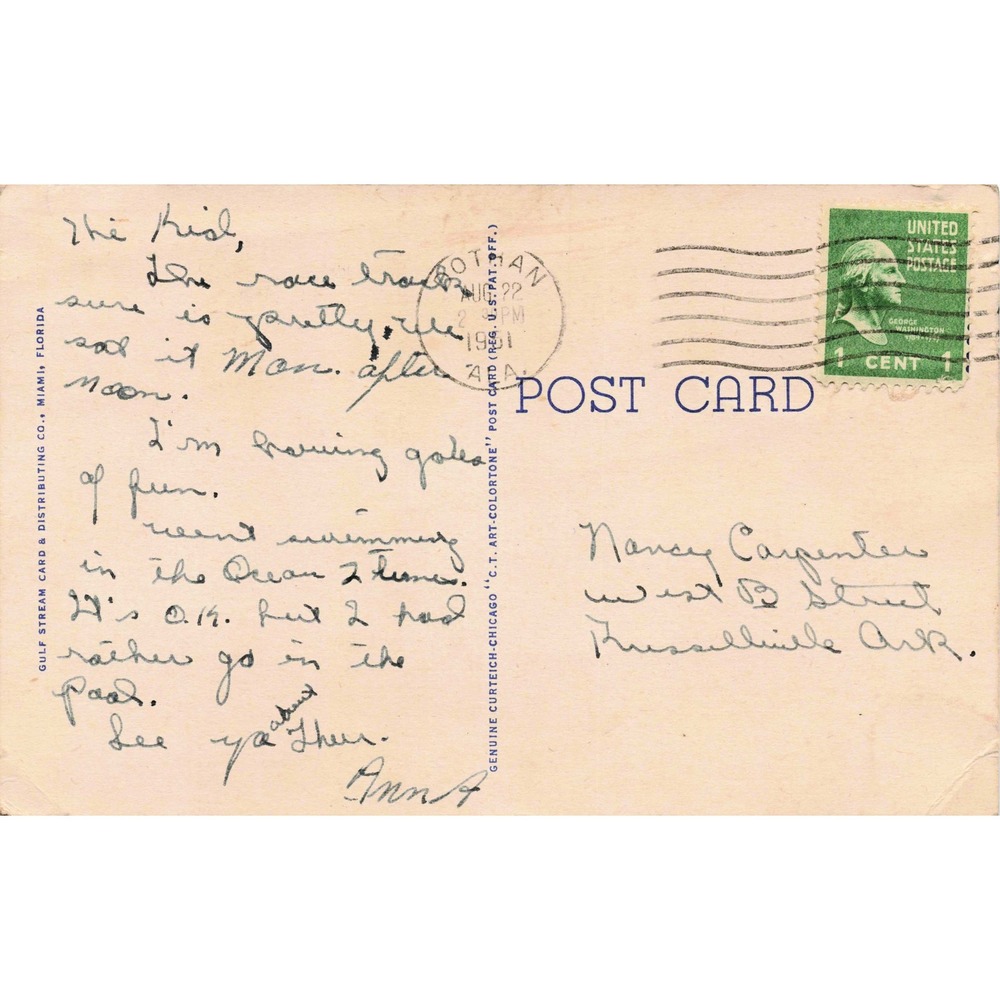 Hi Kid,
The race track
sure is pretty, we
sat it Mon. after
noon.
I'm having gobs
of fun.
went swimming
in the Ocean 2 times.
It's O.K. but I had
rather go in the
pool.
See ya about Thur.
Ann A
GULF STREAM CARD & DISTRIBUTING CO., MIAMI, FLORIDA
GENUINE CURTEICH-CHICAGO "C.T. ART-COLORTONE" POST CARD (REG. U.S. PAT. OFF.)
DOTHAN
AUG 22
2 PM
1951
ALA.
UNITED
STATES
POSTAGE
GEORGE
WASHINGTON
1 CENT 1
POST CARD
Nancy Carpenter
West B Street
Russellville Ark.